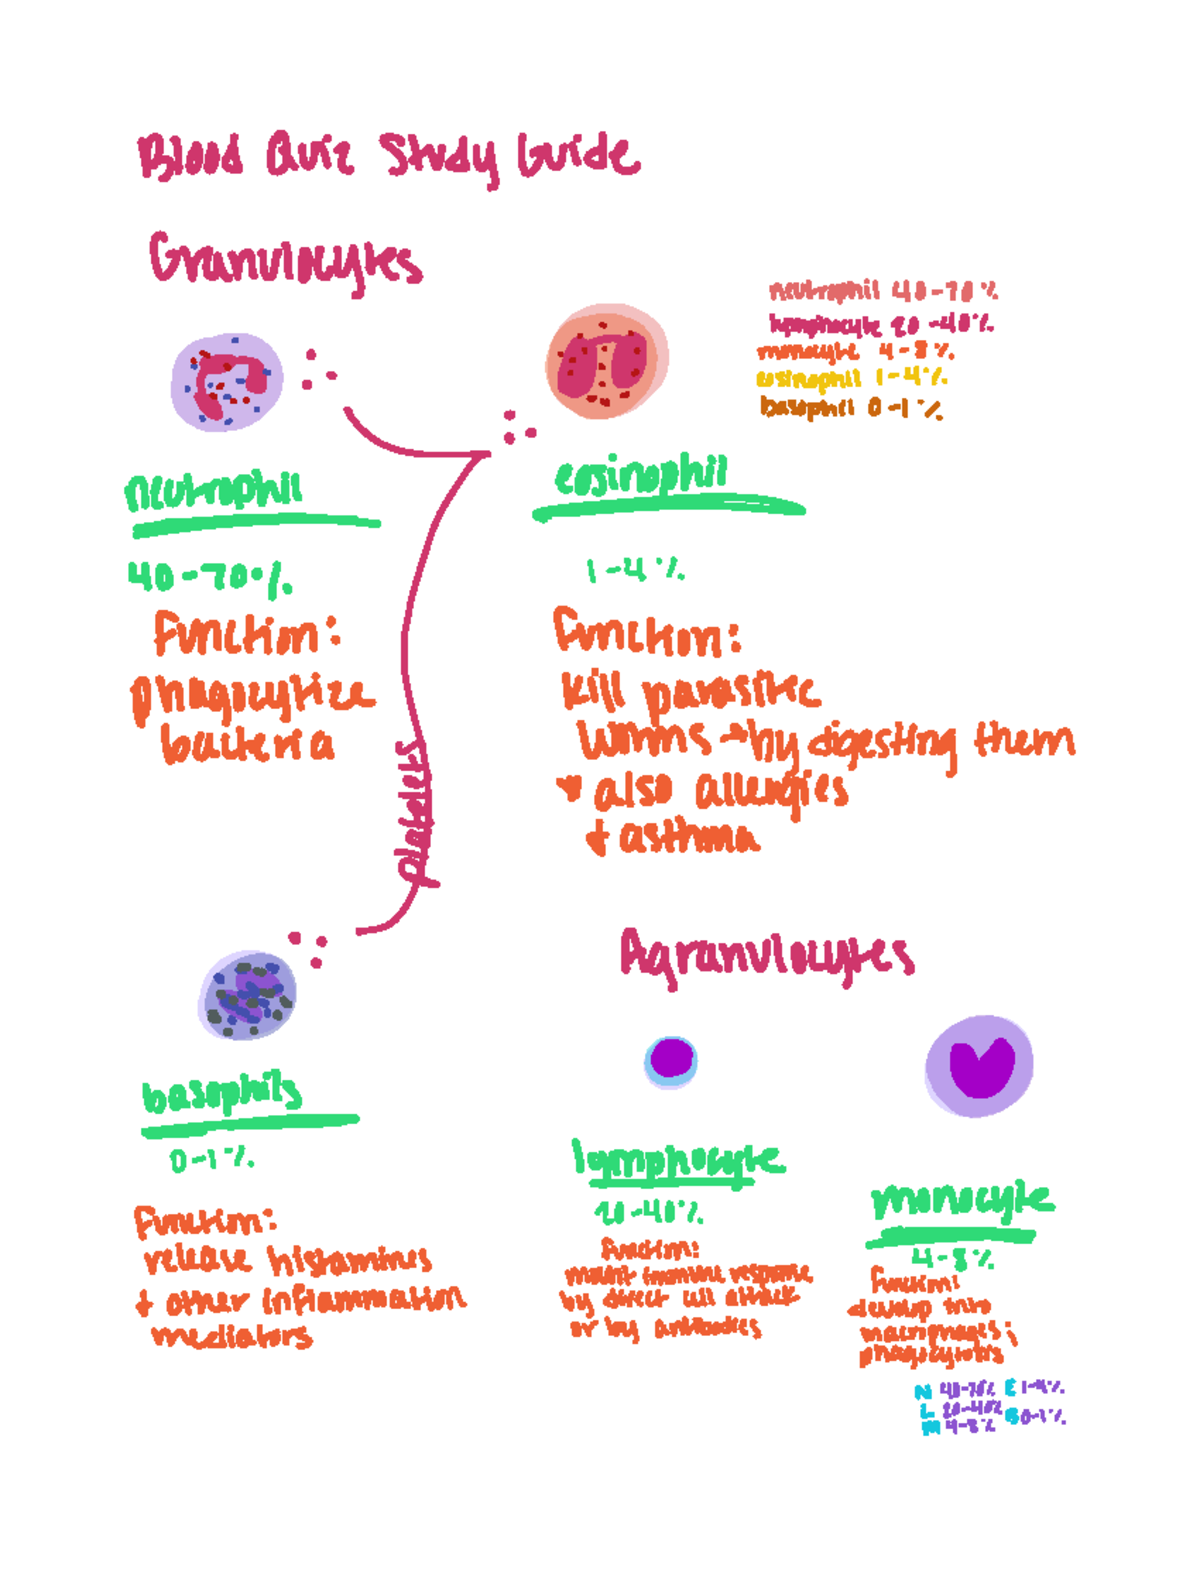 Blood Quiz Study Guide
Granulocytes
neutrophil 40-70%
lymphocyte 20-40%
monocyte 4-8%
eosinophil 1-4%
basophil 0-1%
neutrophil
40-70%
Function:
phagocytize
bacteria
eosinophil
1-4%
Function:
kill parasitic
worms → by digesting them
also allergies
+ asthma
platelets
basophils
0-1%
Function:
release histamines
+ other inflammation
mediators
Agranulocytes
lymphocyte
20-40%
Function:
mount immune response
by direct cell attack
or by antibodies
monocyte
4-8%
Function:
develop into
macrophages;
phagocytosis
N 40-70% E 1-4%
L 20-40% B 0-1%
M 4-8%